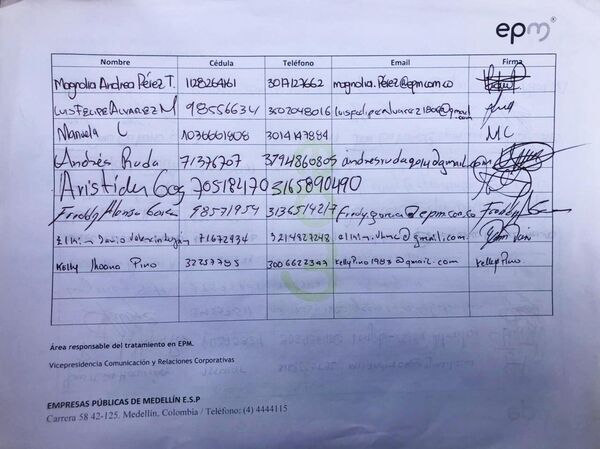 epm®
Nombre Cédula Teléfono Email Firma
Magnolia Andrea Pérez T. 1128264161 3017127662 magnolia.Pérez@epm.com.co
Luis Felipe Alvarez M 98556634 3502048016 luisfelipealvarez1806@gmail.com
Manuela C 1036661808 3014147884 MC
Andrés Ruda 71376707 3794860805
Aristides 70518470 3165890490
Freddy Alonso 98571954 fredy.garcia@epm.com.co
David 71672934 3214927248
Kelly Jhoana Pino 32257785 3006622347 KellyPino1983@gmail.com Kelly Pino.
Área responsable del tratamiento en EPM.
Vicepresidencia Comunicación y Relaciones Corporativas
EMPRESAS PÚBLICAS DE MEDELLÍN E.S.P
Carrera 58 42-125. Medellín, Colombia / Teléfono: (4) 4444115